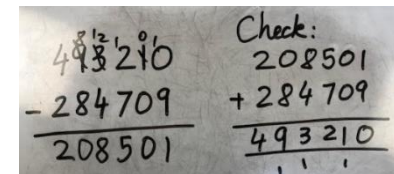 8 12 1 0 1
493210
- 284709
208501
Check:
208501
+ 284709
493210
1 1 1